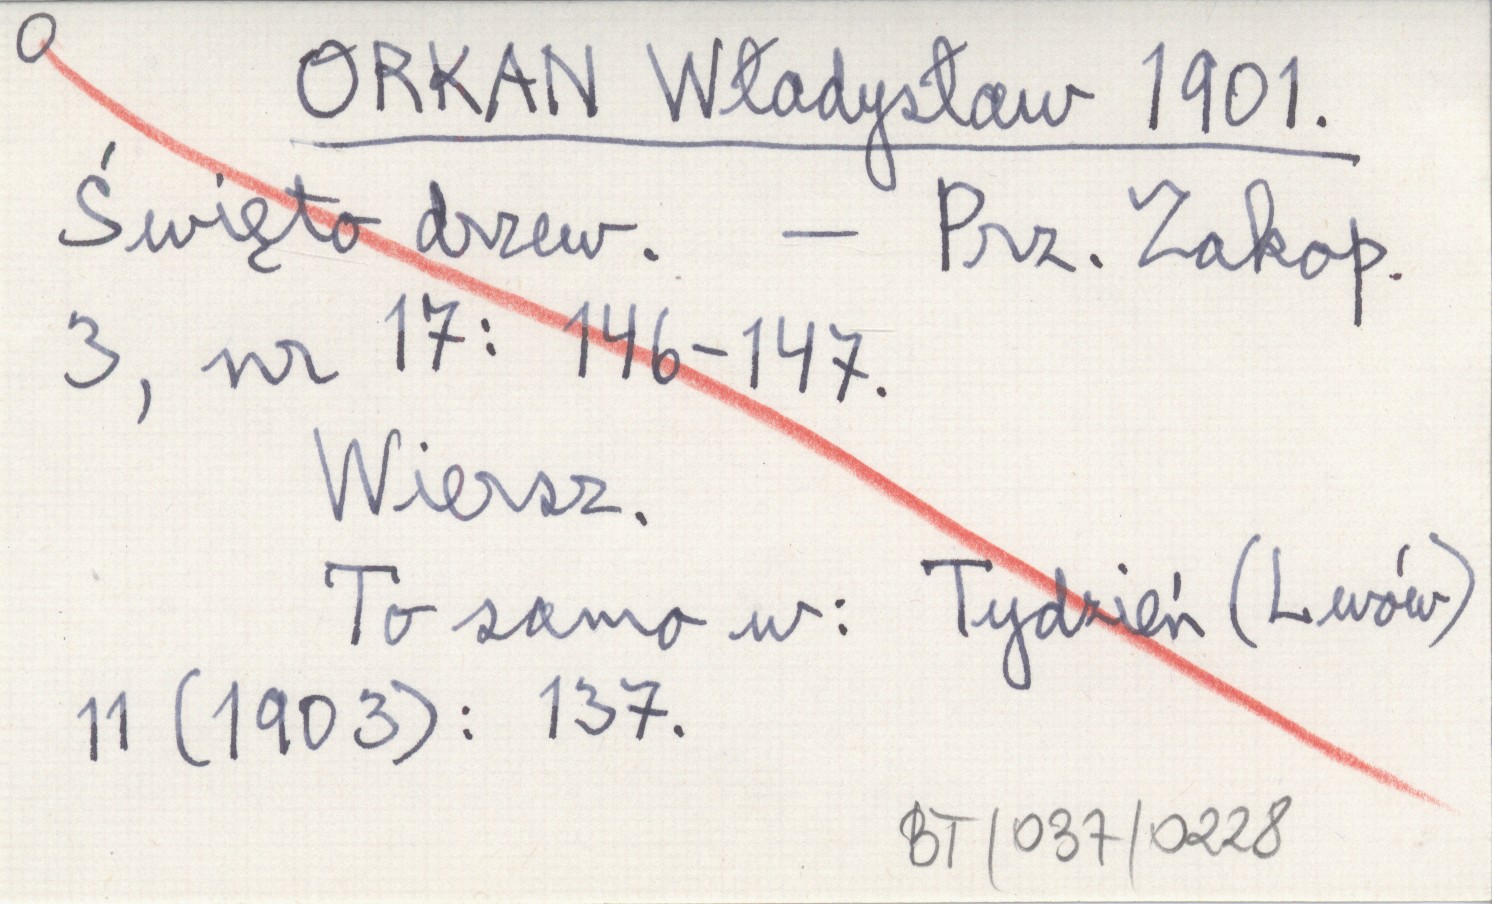 O
ORKAN Władysław 1901.
Święto drzew. — Prz. Zakop.
3, nr 17: 146-147.
Wiersz.
To samo w: Tydzień (Lwów)
11 (1903): 137.
BT/037/0228